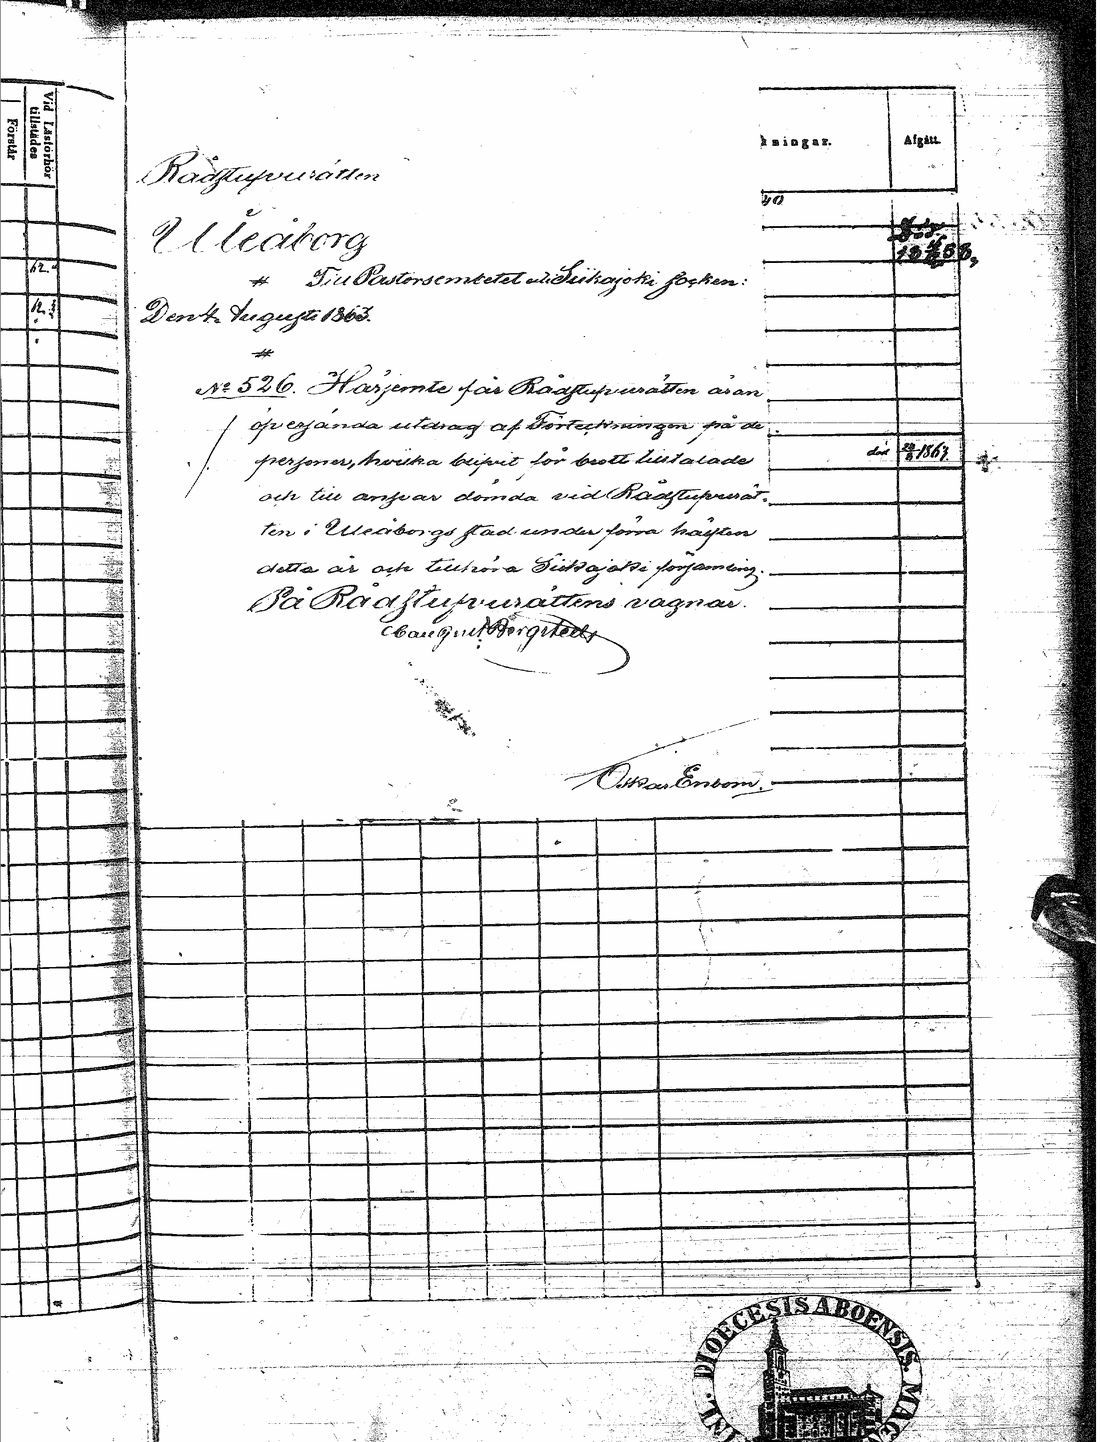 Vid Läsförhör
tillstädes
Förstår
kningar.
Afgått.
40
12.
12.
Rådstufvurätten
i
Uleåborg
Till Pastorsembetet i Siikajoki socken:
Den 4 Augusti 1863.
död 1867
No 526. Härjemte får Rådstufvurätten äran
öfversända utdrag af Förteckningen på de
personer, hvilka blifvit för brott tilltalade
och till ansvar dömda vid Rådstufvurät-
ten i Uleåborgs stad under förra hälften
detta år och tillhöra Siikajoki församling.
På Rådstufvurättens vägnar.
Oskar Enbom.
DIOECESIS ABOENSIS. MAG